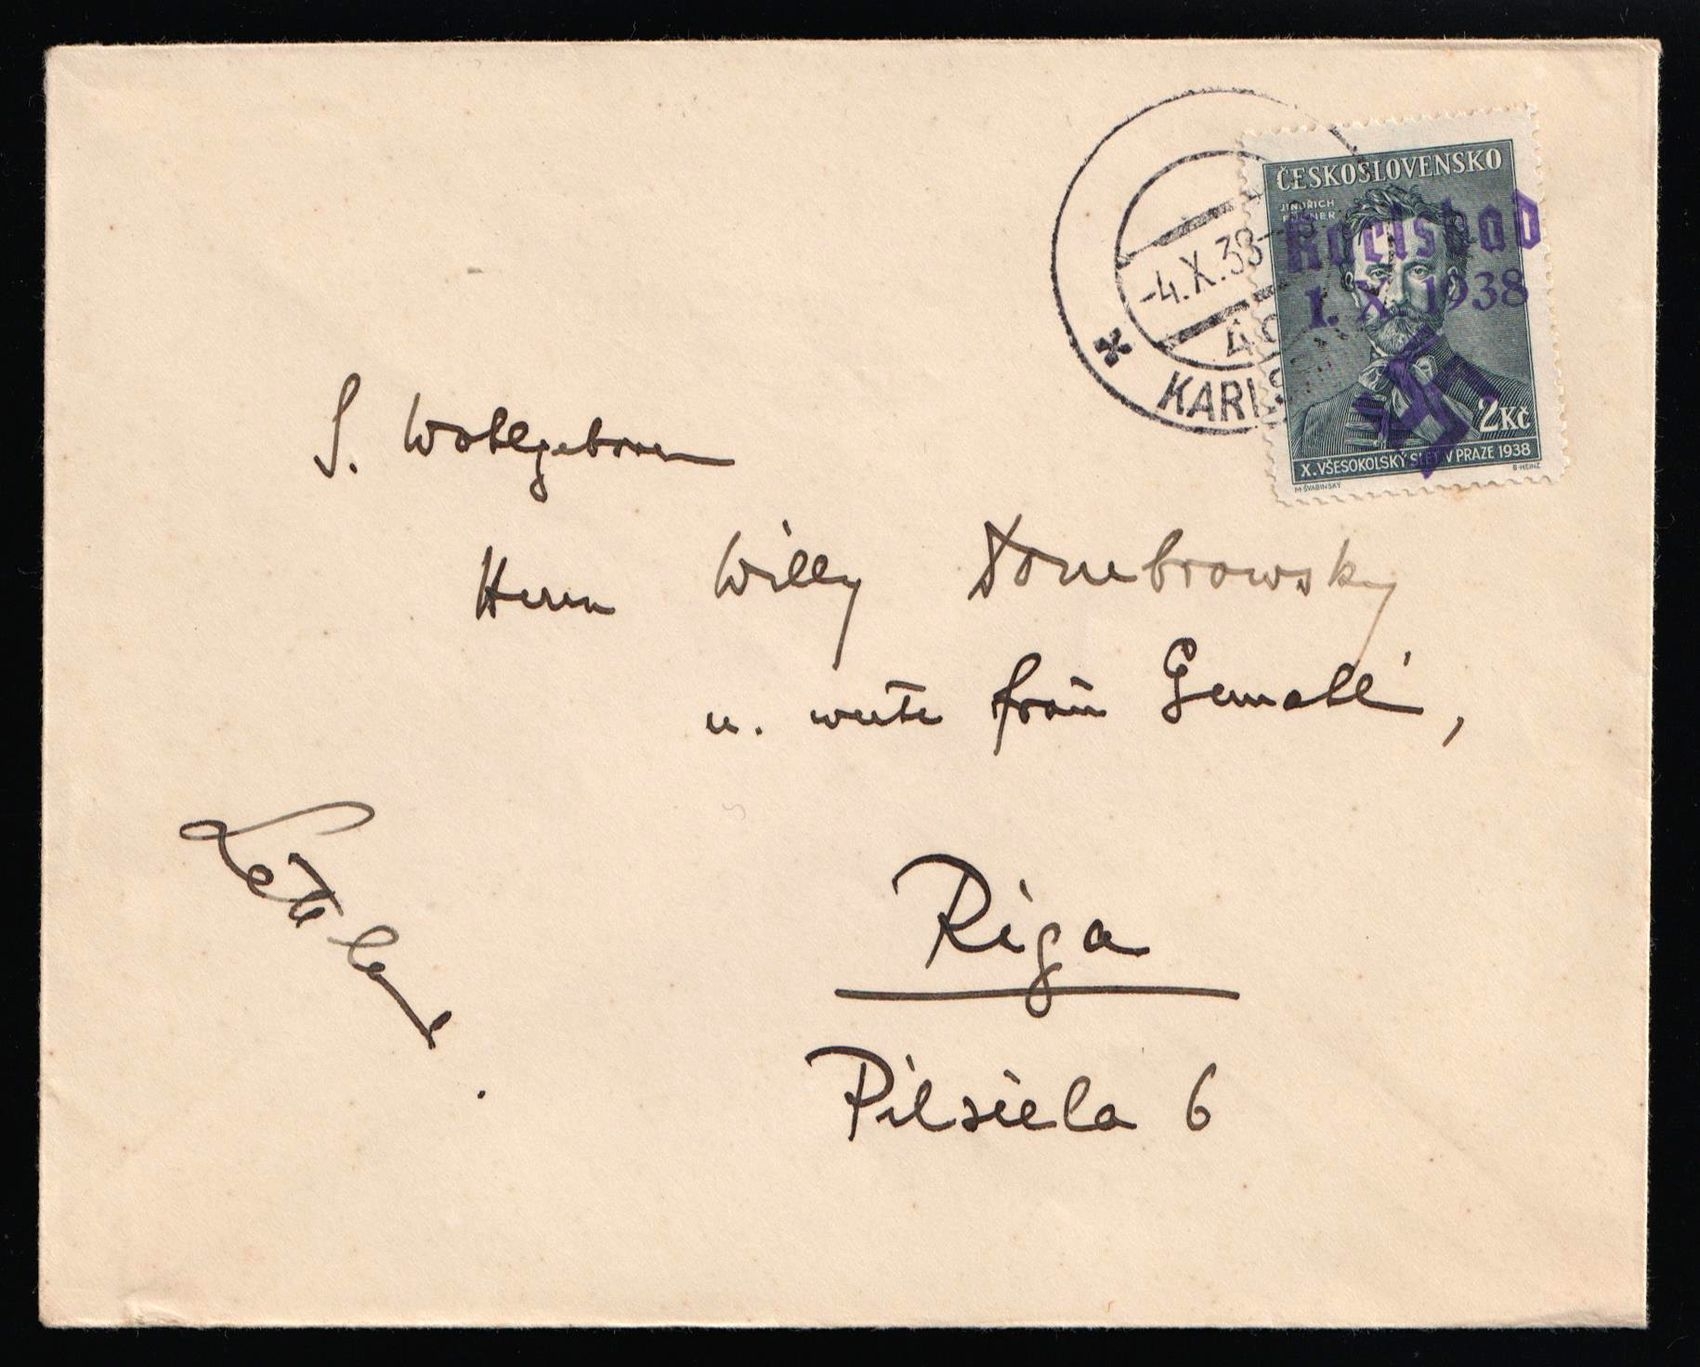 ČESKOSLOVENSKO
JINDŘICH
FÜGNER
Karlsbad
1. X. 1938
2Kč
X. VŠESOKOLSKÝ SLET V PRAZE 1938
M. ŠVABINSKÝ
B. HEINZ
-4.X.38
KARLS
S. Wohlgeboren
Herrn Willy Dombrowsky
u. werte Frau Gemahl,
Riga
Pilsiela 6